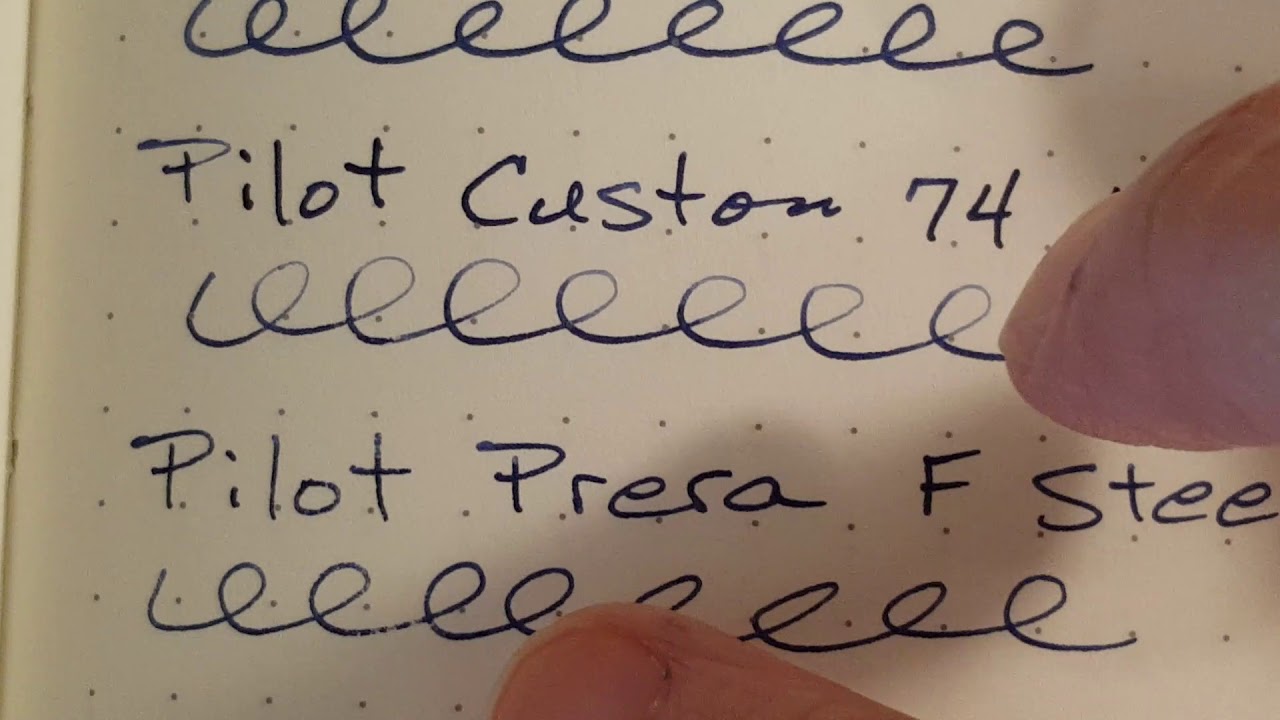 Pilot Custom 74
Pilot Presa F Stee